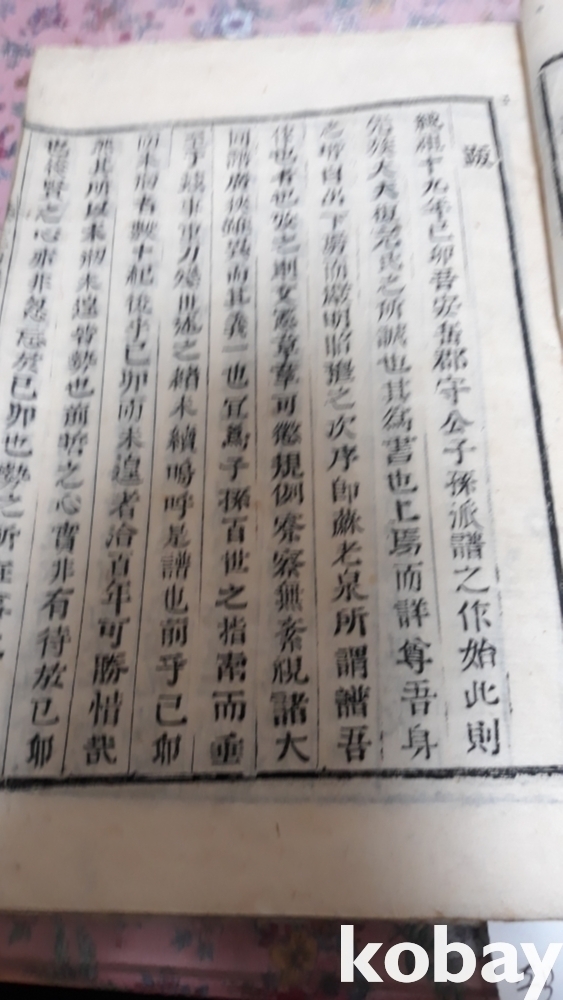 跋
純祖十九年己卯吾安奮郡守公子孫派譜之作始此則
族大夫復岩氏之所誠也其爲書也上焉而詳尊吾身
之所自出下焉而嚴明昭穆之次序卽蘇老泉所謂譜吾
作也者也放之則文憲章章可徵規例察察無紊視諸大
同譜廣狹雖異而其義一也宜爲子孫百世之指南而垂
至于玆事事力殘世述之緖未續嗚呼是譜也前乎己卯
而未有者數十紀後乎己卯而未遑者洽百年可勝惜哉
然其所以未有未遑皆勢也前哲之心實非有待於己卯
也後賢之心亦非忽忘於己卯也勢之所在
kobay